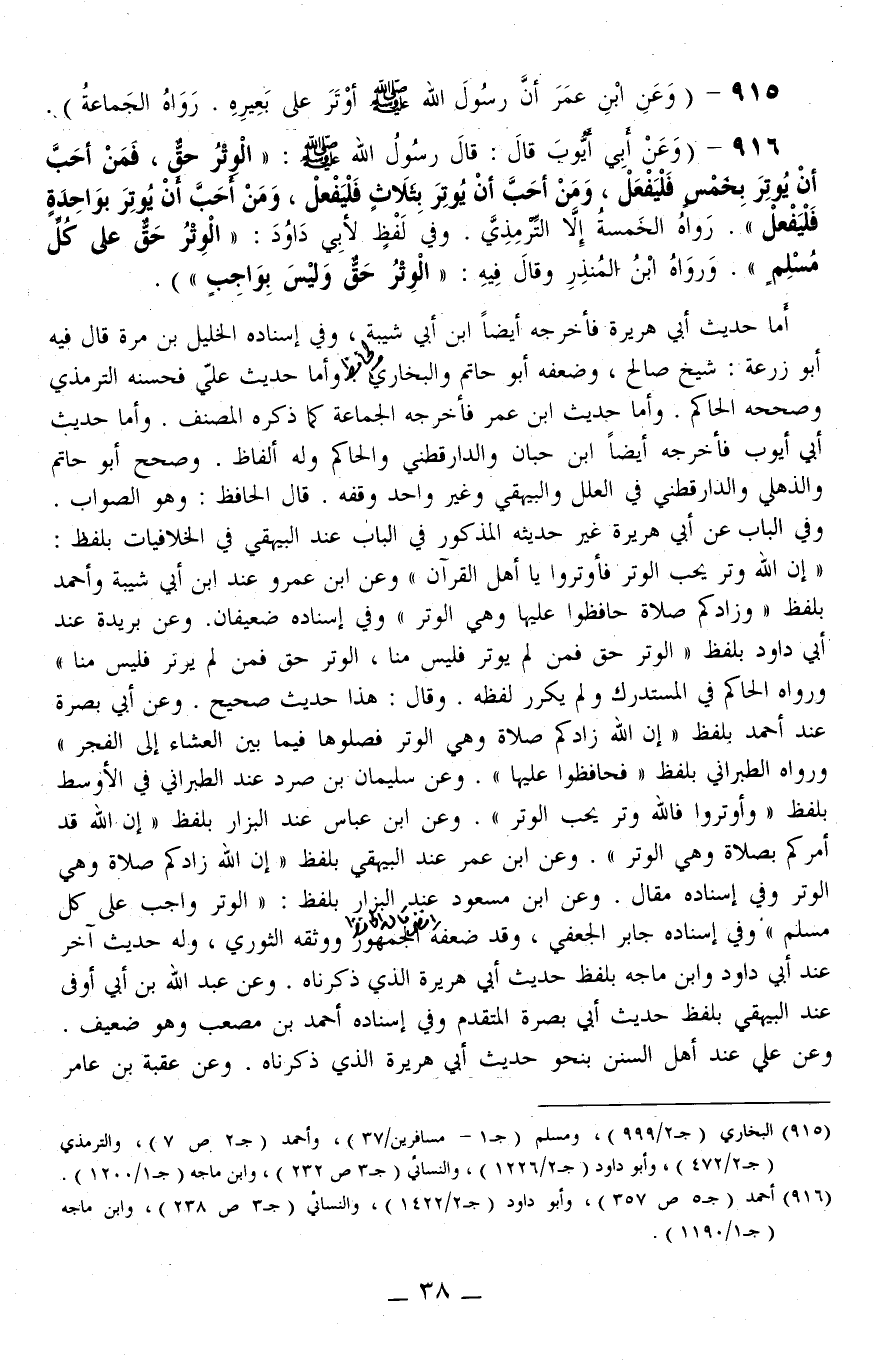 ٩١٥ – ( وَعَنِ ابْنِ عمَرَ أنَّ رسُولَ الله ﷺ أوْتَرَ على بَعِيرِهِ . رَوَاهُ الجَماعةُ ) .
٩١٦ – ( وَعَنْ أَبِي أيُّوبَ قالَ : قالَ رسُولُ الله ﷺ : « الْوِتْرُ حقٌّ ، فَمَنْ أحَبَّ
أنْ يُوتِرَ بِخَمْسٍ فَلْيَفْعَلْ ، وَمَنْ أحَبَّ أنْ يُوتِرَ بِثَلَاثٍ فَلْيَفْعلْ ، وَمَنْ أَحَبَّ أَنْ يُوتِرَ بوَاحِدَةٍ
فَلْيَفْعلْ » . رَواهُ الخَمسةُ إلَّا التِّرْمِذِيَّ . وفي لَفْظٍ لأبي دَاوُدَ : « الْوِتْرُ حَقٌّ على كُلِّ
مُسْلِمٍ » . وَروَاهُ ابْنُ المُنذِرِ وقالَ فِيهِ : « الْوِتْرُ حَقٌّ وَلَيْسَ بِوَاجِبٍ » ) .
أما حديث أبي هريرة فأخرجه أيضاً ابن أبي شيبة ، وفي إسناده الخليل بن مرة قال فيه
أبو زرعة : شيخ صالح ، وضعفه أبو حاتم والبخاري وأما حديث عليّ فحسنه الترمذي
وصححه الحاكم . وأما حديث ابن عمر فأخرجه الجماعة كما ذكره المصنف . وأما حديث
أبي أيوب فأخرجه أيضاً ابن حبان والدارقطني والحاكم وله ألفاظ . وصحح أبو حاتم
والذهلي والدارقطني في العلل والبيهقي وغير واحد وقفه . قال الحافظ : وهو الصواب .
وفي الباب عن أبي هريرة غير حديثه المذكور في الباب عند البيهقي في الخلافيات بلفظ :
« إن الله وتر يحب الوتر فأوتروا يا أهل القرآن » وعن ابن عمرو عند ابن أبي شيبة وأحمد
بلفظ « وزادكم صلاة حافظوا عليها وهي الوتر » وفي إسناده ضعيفان. وعن بريدة عند
أبي داود بلفظ « الوتر حق فمن لم يوتر فليس منا ، الوتر حق فمن لم يرتر فليس منا »
ورواه الحاكم في المستدرك ولم يكرر لفظه . وقال : هذا حديث صحيح . وعن أبي بصرة
عند أحمد بلفظ « إن الله زادكم صلاة وهي الوتر فصلوها فيما بين العشاء إلى الفجر »
ورواه الطبراني بلفظ « فحافظوا عليها » . وعن سليمان بن صرد عند الطبراني في الأوسط
بلفظ « وأوتروا فالله وتر يحب الوتر » . وعن ابن عباس عند البزار بلفظ « إن الله قد
أمركم بصلاة وهي الوتر » . وعن ابن عمر عند البيهقي بلفظ « إن الله زادكم صلاة وهي
الوتر وفي إسناده مقال . وعن ابن مسعود عند البزار بلفظ : « الوتر واجب على كل
مسلم » وفي إسناده جابر الجعفي ، وقد ضعفه الجمهور ووثقه الثوري ، وله حديث آخر
عند أبي داود وابن ماجه بلفظ حديث أبي هريرة الذي ذكرناه . وعن عبد الله بن أبي أوفى
عند البيهقي بلفظ حديث أبي بصرة المتقدم وفي إسناده أحمد بن مصعب وهو ضعيف .
وعن علي عند أهل السنن بنحو حديث أبي هريرة الذي ذكرناه . وعن عقبة بن عامر
(٩١٥) البخاري ( جـ٩٩٩/٢ ) ، ومسلم ( جـ١ – مسافرين/٣٧ ) ، وأحمد ( جـ٢ ص ٧ ) ، والترمذي
( جـ٤٧٢/٢ ) ، وأبو داود ( جـ١٢٢٦/٢ ) ، والنسائي ( جـ٣ ص ٢٣٢ ) ، وابن ماجه ( جـ١٢٠٠/١ ) .
(٩١٦) أحمد ( جـ٥ ص ٣٥٧ ) ، وأبو داود ( جـ١٤٢٢/٢ ) ، والنسائي ( جـ٣ ص ٢٣٨ ) ، وابن ماجه
( جـ١١٩٠/١ ) .
– ٣٨ –